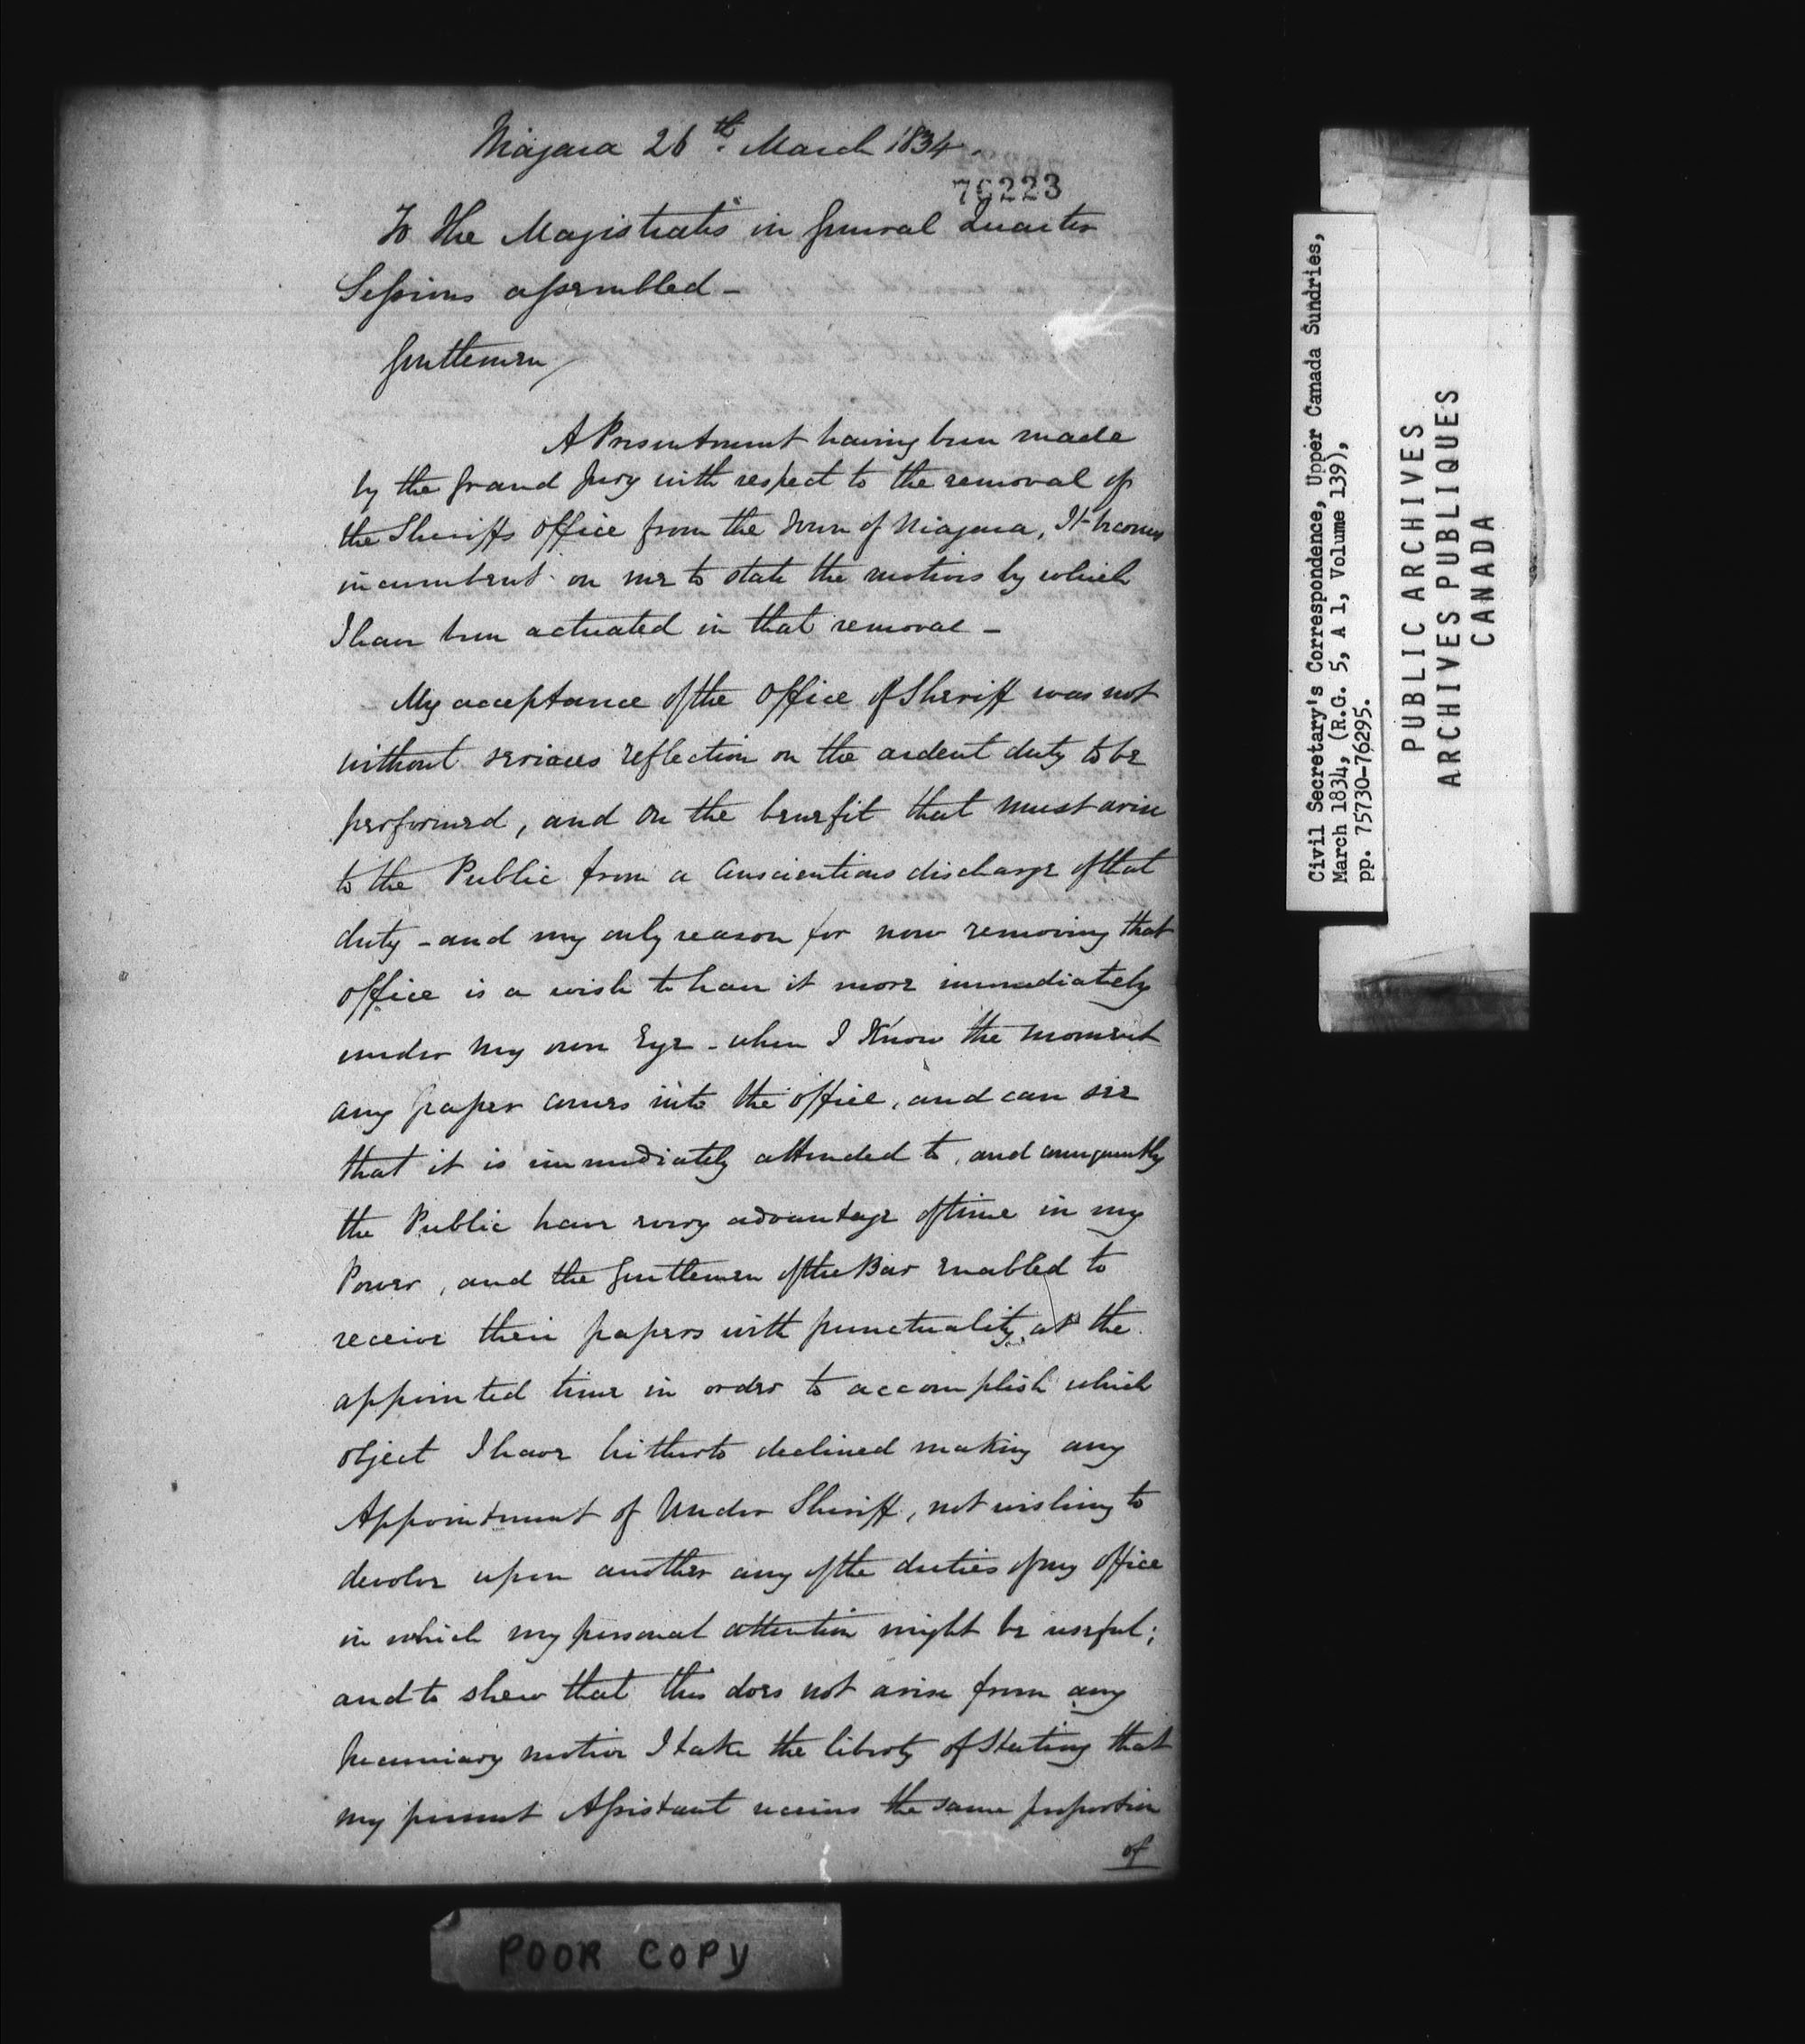 Niagara 26th. March 1834.
76223
To the Magistrates in General Quarter
Sessions assembled –
Gentlemen/
A Presentment having been made
by the Grand Jury with respect to the removal of
the Sheriffs office from the Town of Niagara, It becomes
incumbent on me to state the motives by which
I have been actuated in that removal –
My acceptance of the Office of Sheriff was not
without serious reflection on the ardent duty to be
performed, and on the benefit that must arise
to the Public from a conscientious discharge of that
duty – and my only reason for now removing that
office is a wish to have it more immediately
under my own Eye – when I Know the moment
any paper comes into the office, and can see
that it is immediately attended to, and consequently
the Public have every advantage of time in my
Power, and the Gentlemen of the Bar enabled to
receive their papers with punctuality, at the
appointed time in order to accomplish which
object I have hitherto declined making any
Appointment of Under Sheriff, not wishing to
devolve upon another any of the duties of my office
in which my personal attention might be useful;
and to shew that this does not arise from any
pecuniary motive I take the liberty of Stating that
my present Assistant receives the same proportion
of
POOR COPY
Civil Secretary's Correspondence, Upper Canada Sundries,
March 1834, (R.G. 5, A 1, Volume 139),
pp. 75730-76295.
PUBLIC ARCHIVES
ARCHIVES PUBLIQUES
CANADA